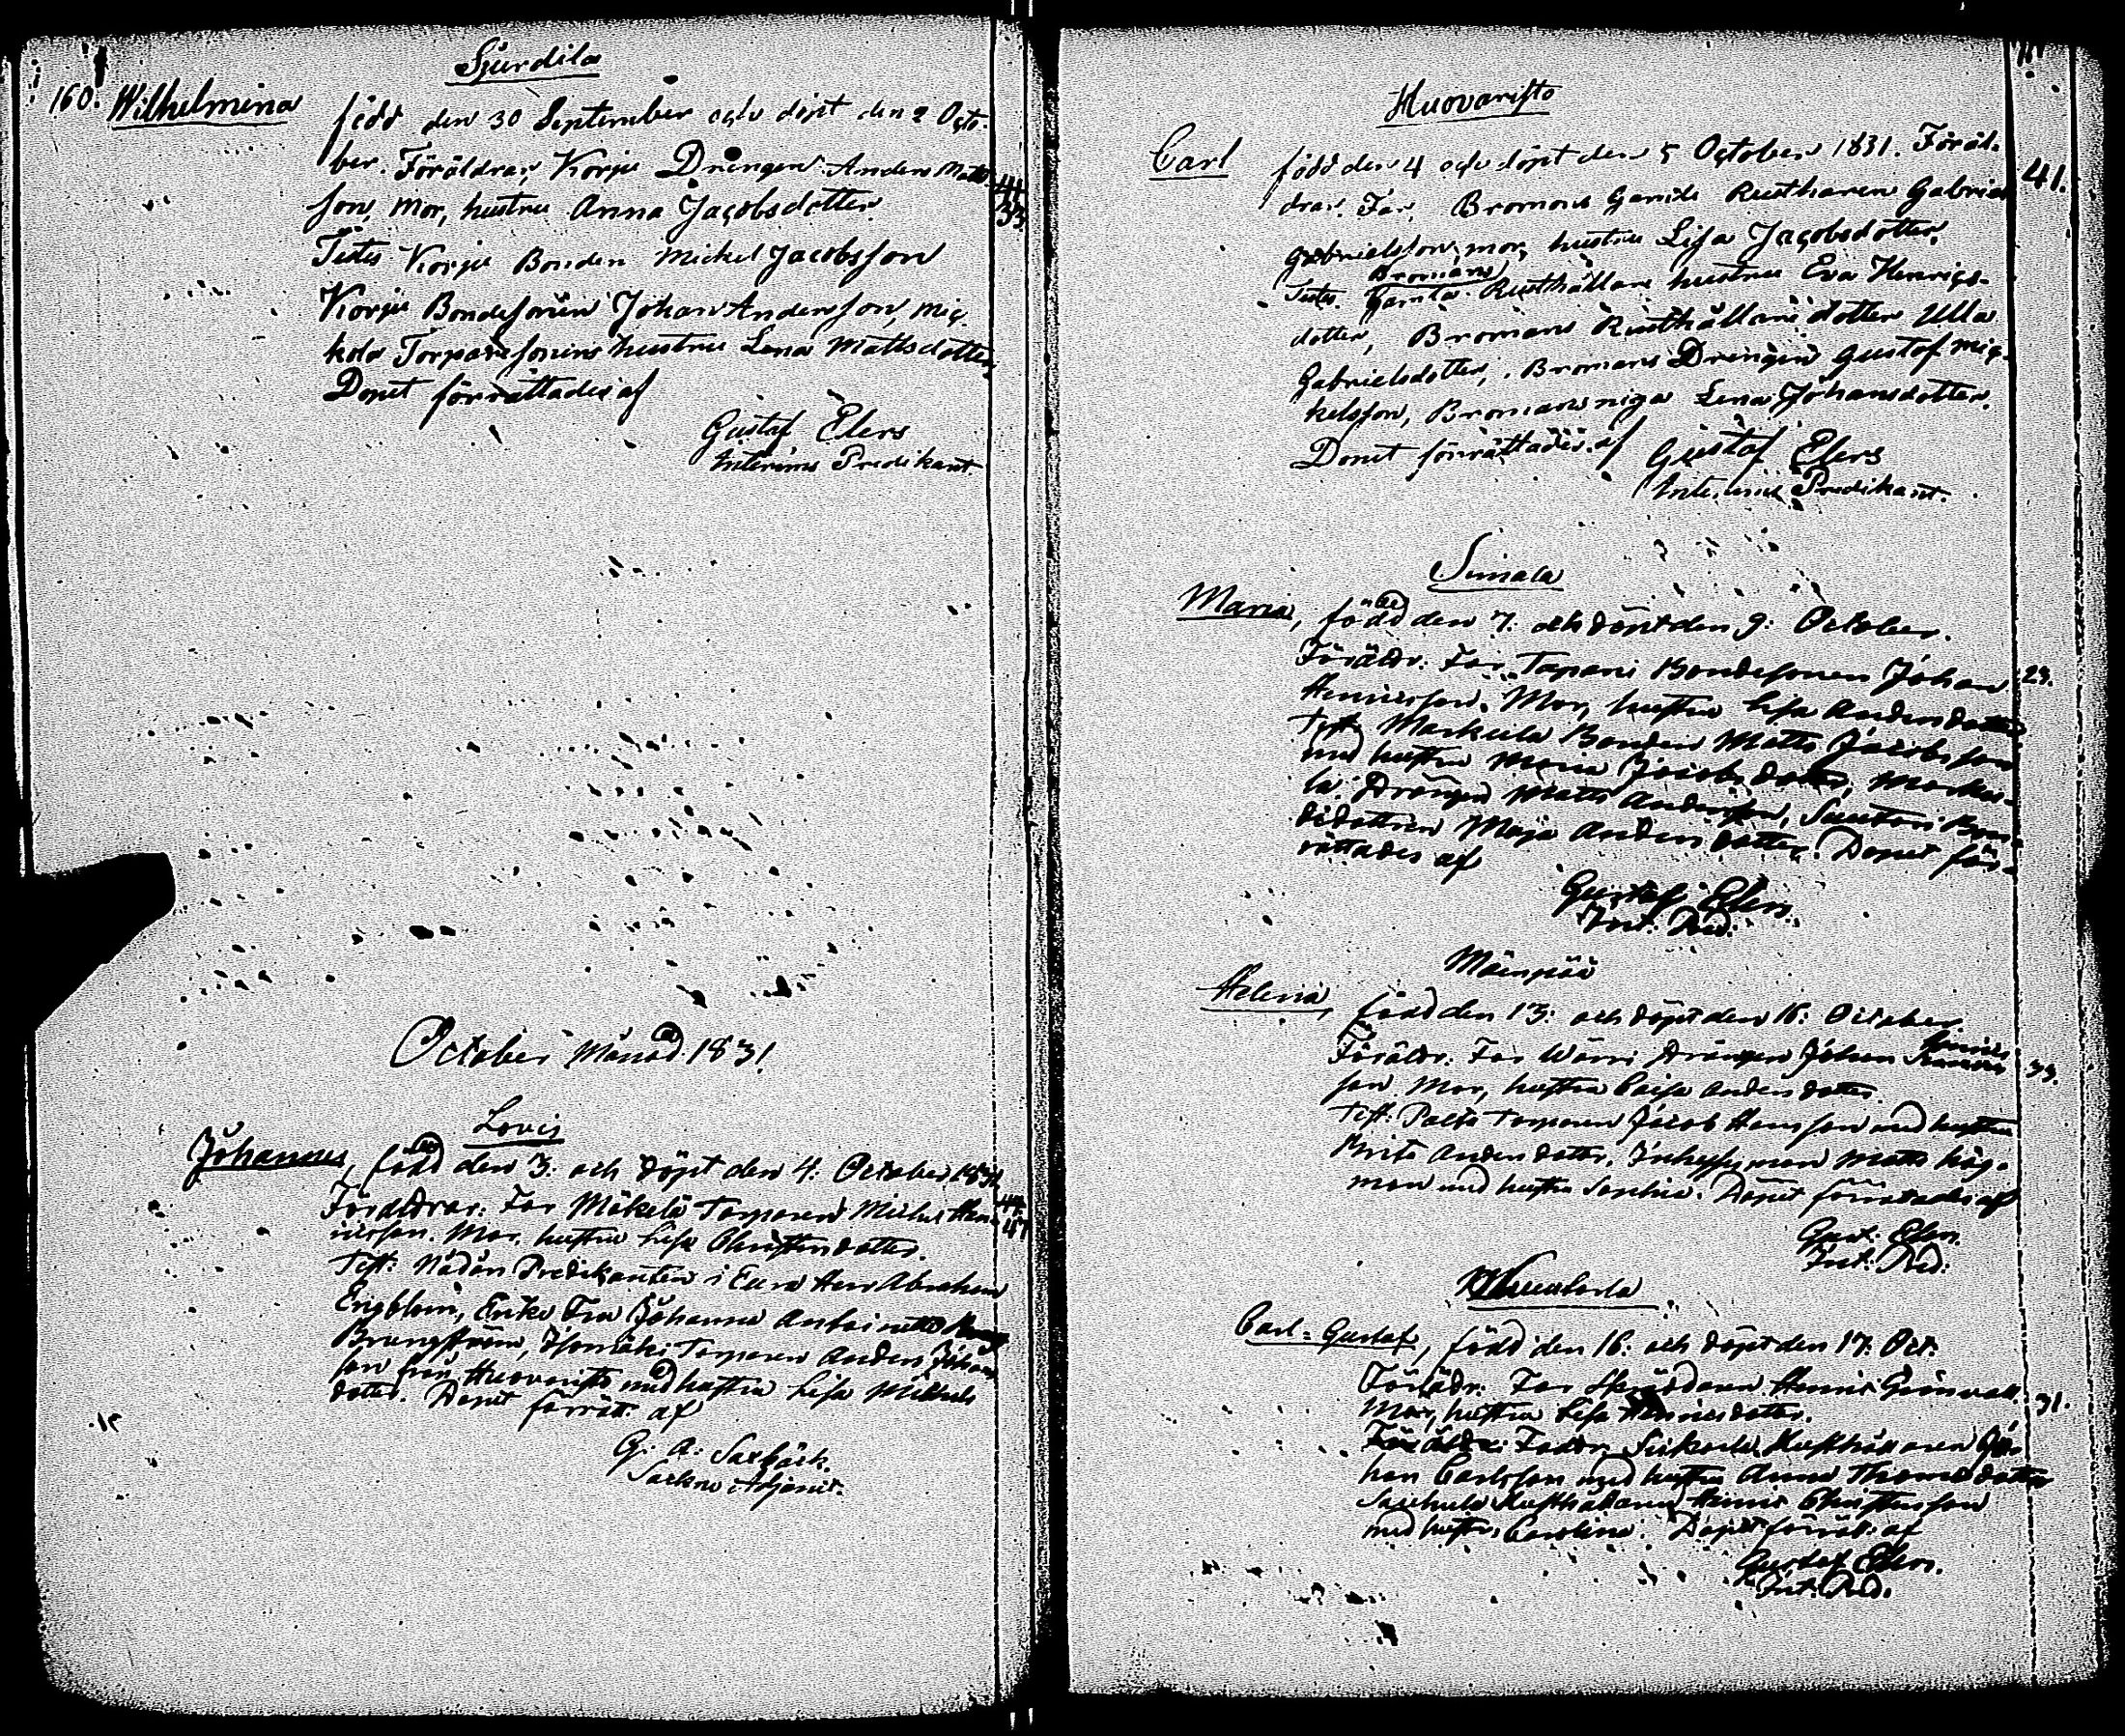 Sjurdila
160. Wilhelmina
född den 30 September och döpt den 2 Octo-
ber. Föräldrar, Korpi Drängen Anders Matts-
son, Mor, hustru Anna Jacobsdotter.
41
33
Testes Korpi Bonden Mickel Jacobsson
Korpi Bondesonen Johan Andersson, Mic-
kola Torparesonens hustru Lena Mattsdotter
Dopet förrättades af
Gustaf Elers
Interims Predikant
October Månad 1831
Lovis
Johannes, född den 3. och döpt den 4. October 1831
Föräldrar: Far Mäkelä Torparen Michel Hen-
ricsson. Mor, hustru Lisa Christersdotter.
47
Test: Nådårs Predikanten i Eura Herr Abraham
Engblom, Enke Fru Johanna Antoinette
Brungström, Isomäki Torparen Anders Johans-
son från Huovaristo med hustru Lisa Michels
dotter. Dopet förrätt. af
G: A: Saxbäck.
Sockne Adjunct.
Huovaristo
Carl
född den 4 och döpt den 5 October 1831. Föräl-
41.
drar. Far, Bromans Gamle Rusthåraren Gabriel
Gabrielsson, mor, hustru Lisa Jacobsdotter.
Bromans
Testes. Gamla Rusthållare hustru Eva Henrics-
dotter, Bromans Rusthållare dotter Ulla
Gabrielsdotter, Bromans Drängen Gustaf Mic-
kelsson, Bromans piga Lena Johansdotter.
Dopet förrättades af Gustaf Elers
Interims Predikant.
Simala
Maria, född den 7. och döpt den 9: October.
Föräldr: Far Tapani Bondesonen Johan
29.
Henricsson. Mor, hustru Lisa Andersdotter
Test: Markula Bonden Matts Jacobsson
med hustru Maria Jacobsdotter, Marku-
la Drängen Matts Andersson, Bon-
dedottren Maja Andersdotter. Dopet för-
rättades af
Gustaf Elers
Int: Pred:
Mäenpää
Helena, född den 13: och döpt den 16: October
Föräldr: Far Wärri Drängen Johan
33.
son Mor, hustru Caisa Andersdotter.
Test: Torparen Jacob Hansson med hustru
Brita Andersdotter, Inhysesman Matts Hög-
man med hustru Sophia. Dopet förrättades af
Gust: Elers.
Int: Pred:
Carl-Gustaf, född den 16: och döpt den 17: Oct:
Föräldr: Far Skräddaren Henric Grönvall.
31.
Mor, hustru Lisa Henricsdotter.
Faddr: Rusthållaren Jo-
han Carlsson med hustru Anna Thomasdotter
Rusthållaren Henric Christersson
med hustru Carolina. Dopet förrätt: af
Gustaf Elers.
Int: Pred.